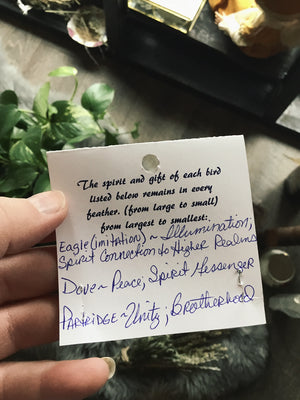 The spirit and gift of each bird
listed below remains in every
feather. (from large to small)
from largest to smallest:.
Eagle (imitation) ~ Illumination,
Spirit Connection to Higher Realms
Dove ~ Peace; Spirit Messenger
Partridge ~ Unity; Brotherhood